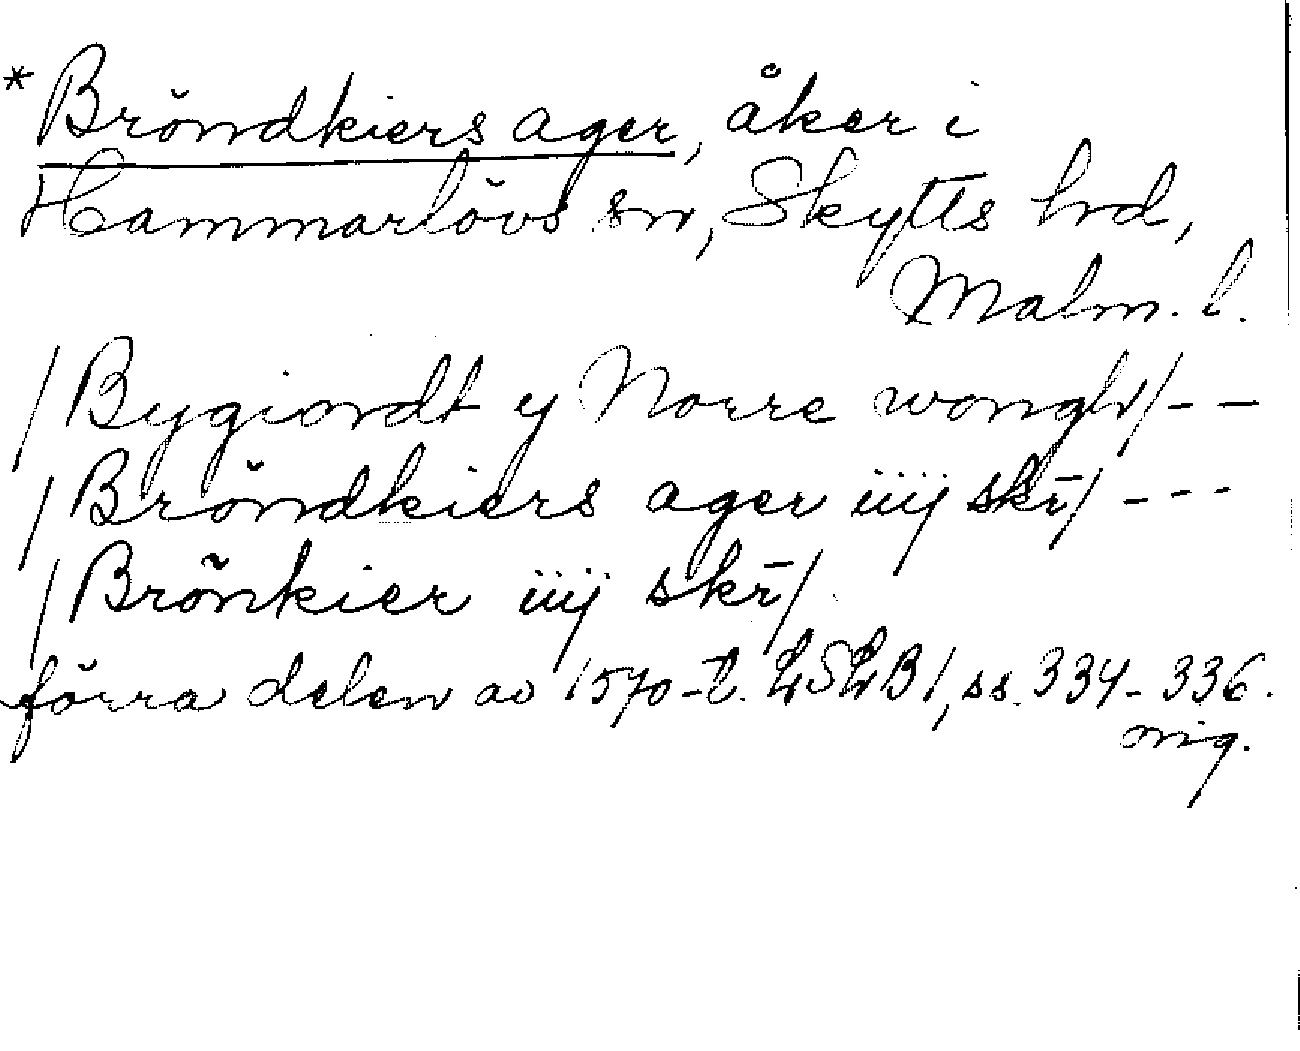 *Bröndkiers ager, åker i
Hammarlövs sn, Skytts hrd,
Malm. l.
/Bygiondt y Norre wongh/ - -
/Bröndkiers ager iiij skr̄/ - - -
/Brönkier iiij skr̄/.
förra delen av 1570-t. LSLB 1, ss. 334-336.
orig.